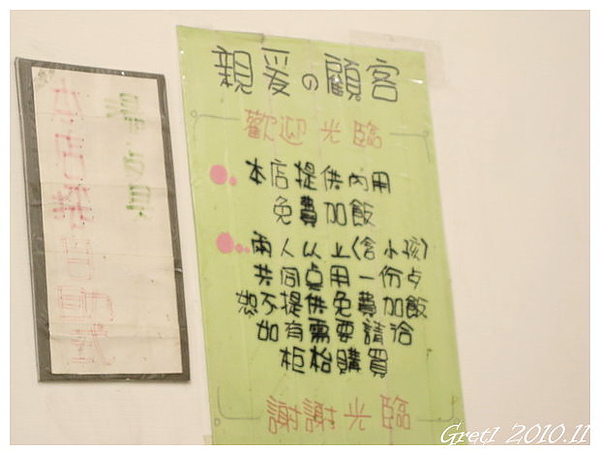 親爱の顧客
歡迎光臨
本店提供內用
免費加飯
兩人以上(含小孩)
共同点用一份点
恕不提供免費加飯
如有需要請洽
柜枱購買
謝謝光臨
本店採自助式
Gret1 2010.11